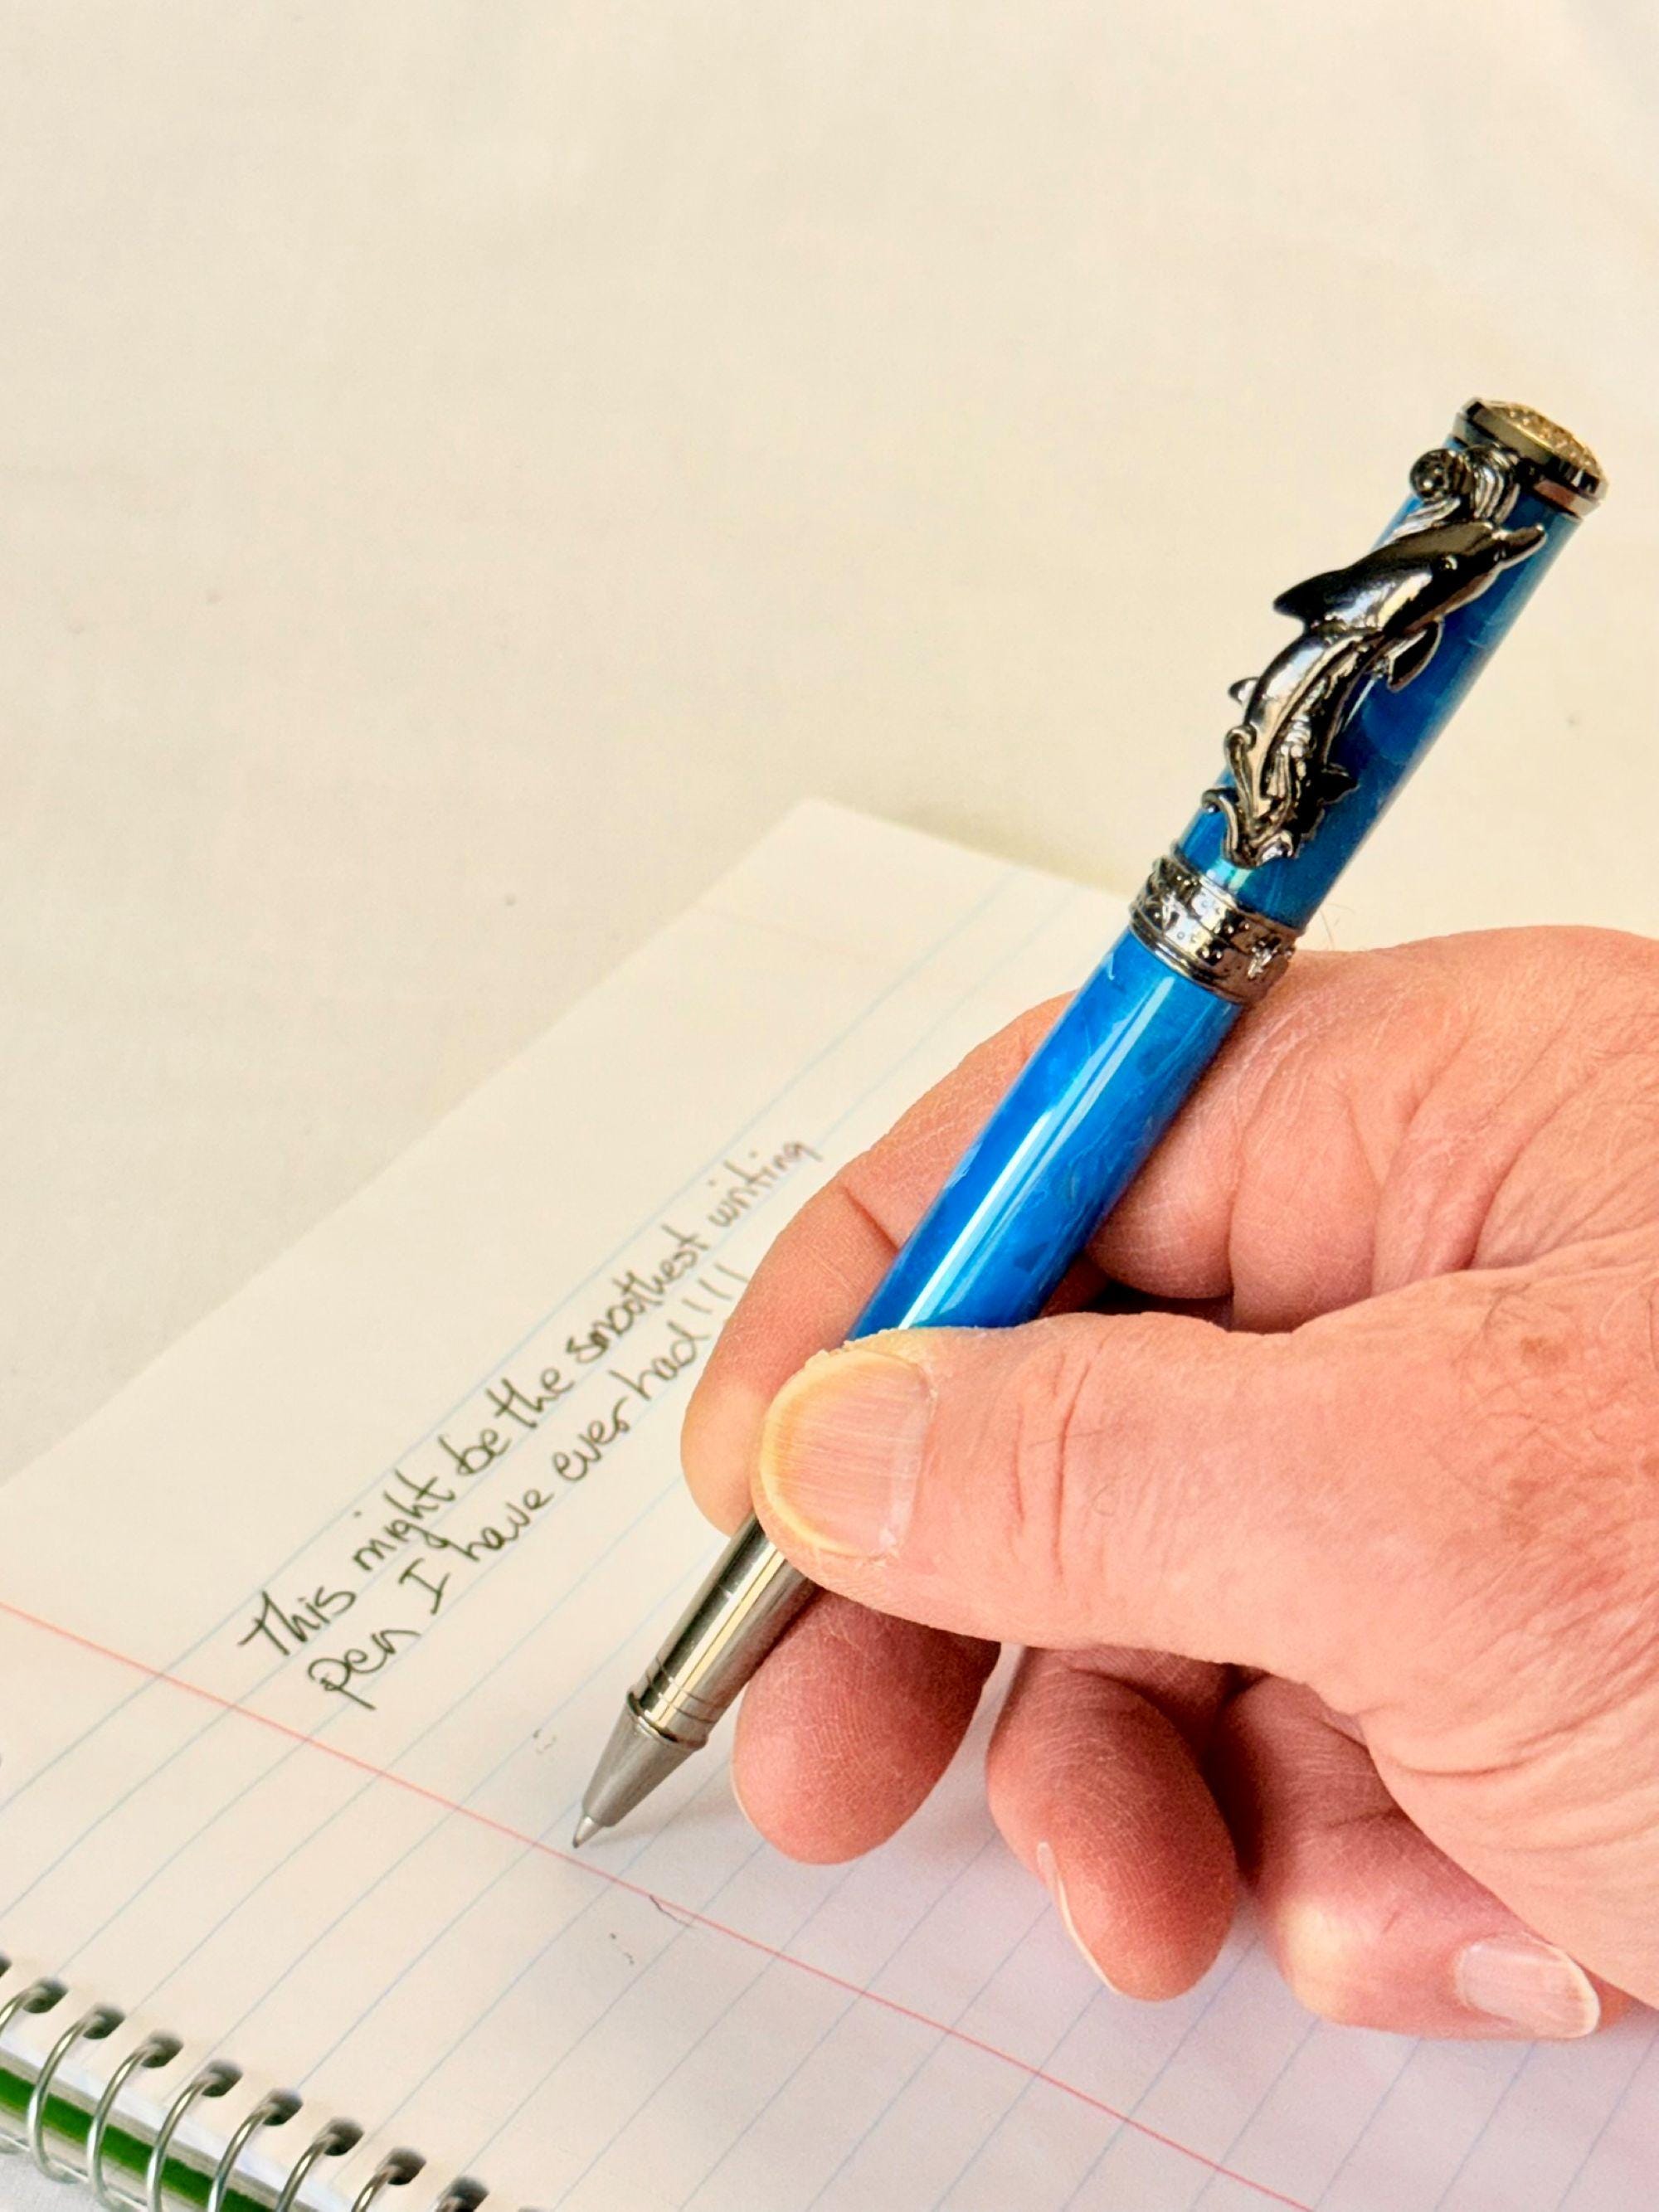 This might be the smoothest writing
pen I have ever had !!!